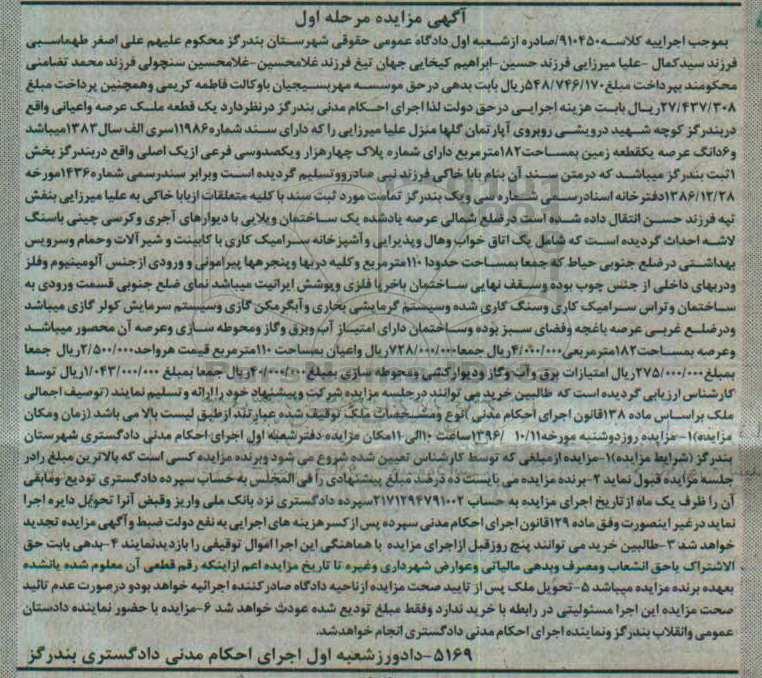 آگهی مزایده مرحله اول
بموجب اجراییه کلاسه ۹۱۰۴۵۰/صادره ازشعبه اول دادگاه عمومی حقوقی شهرستان بندرگز محکوم علیهم علی اصغر طهماسبی
فرزند سیدکمال -علیا میرزایی فرزند حسین-ابراهیم کیخایی جهان تیغ فرزند غلامحسین-غلامحسین سنچولی فرزند محمد تضامنی
محکومند بپرداخت مبلغ۵۴۸/۷۴۶/۱۷۰ریال بابت بدهی درحق موسسه مهربسیجیان باوکالت فاطمه کریمی وهمچنین پرداخت مبلغ
۲۷/۴۳۷/۳۰۸ریال بابت هزینه اجرایی درحق دولت لذا اجرای احکام مدنی بندرگز درنظردارد یک قطعه ملک عرصه واعیانی واقع
دربندرگز کوچه شهید درویشی روبروی آپارتمان گلها منزل علیا میرزایی را که دارای سند شماره۱۱۹۸۶سری الف سال۱۳۸۳میباشد
و۶دانگ عرصه یکقطعه زمین بمساحت۱۸۲مترمربع دارای شماره پلاک چهارهزار ویکصدوسی فرعی ازیک اصلی واقع دربندرگز بخش
۱ثبت بندرگز میباشد که درمتن سند آن بنام بابا خاکی فرزند نبی صادرووتسلیم گردیده است وبرابر سندرسمی شماره۱۴۳۶مورخه
۱۳۸۶/۱۲/۲۸دفترخانه اسنادرسمی شماره سی ویک بندرگز تمامت مورد ثبت سند با کلیه متعلقات ازبابا خاکی به علیا میرزایی بنفش
تپه فرزند حسن انتقال داده شده است درضلع شمالی عرصه یادشده یک ساختمان ویلایی با دیوارهای آجری وکرسی چینی باسنگ
لاشه احداث گردیده است که شامل یک اتاق خواب وهال وپذیرایی وآشپزخانه سرامیک کاری با کابینت و شیرآلات وحمام وسرویس
بهداشتی درضلع جنوبی حیاط که جمعا بمساحت حدودا ۱۱۰مترمربع وکلیه دربها وپنجره‌ها پیرامونی و ورودی ازجنس آلومینیوم وفلز
ودربهای داخلی از جنس چوب بوده وسقف نهایی ساختمان باخرپا فلزی وپوشش ایرانیت میباشد نمای ضلع جنوبی قسمت ورودی به
ساختمان وتراس سرامیک کاری وسنگ کاری شده وسیستم گرمایشی بخاری وآبگرمکن گازی وسیستم سرمایش کولر گازی میباشد
ودرضلع غربی عرصه باغچه وفضای سبز بوده وساختمان دارای امتیاز آب وبرق وگاز ومحوطه سازی وعرصه آن محصور میباشد
وعرصه بمساحت۱۸۲مترمربعی۴/۰۰۰/۰۰۰ریال جمعا۷۲۸/۰۰۰/۰۰۰ریال واعیان بمساحت ۱۱۰مترمربع قیمت هرواحد۲/۵۰۰/۰۰۰ریال جمعا
بمبلغ۲۷۵/۰۰۰/۰۰۰ریال امتیازات برق وآب وگاز ودیوارکشی ومحوطه سازی بمبلغ۴۰/۰۰۰/۰۰۰ریال جمعا بمبلغ ۱/۰۴۳/۰۰۰/۰۰۰ریال توسط
کارشناس ارزیابی گردیده است که طالبین خرید می توانند درجلسه مزایده شرکت وپیشنهاد خود را ارائه و تسلیم نمایند (توصیف اجمالی
ملک براساس ماده ۱۳۸قانون اجرای احکام مدنی )نوع ومشخصات ملک توقیف شده عبارتند ازطبق لیست بالا می باشد (زمان ومکان
مزایده)۱-مزایده روزدوشنبه مورخه۱۰/۱۱ /۱۳۹۶ساعت ۱۰الی۱۱مکان مزایده دفترشعبه اول اجرای احکام مدنی دادگستری شهرستان
بندرگز (شرایط مزایده)۱-مزایده ازمبلغی که توسط کارشناس تعیین شده شروع می شود وبرنده مزایده کسی است که بالاترین مبلغ رادر
جلسه مزایده قبول نماید ۲-برنده مزایده می بایست ده درصد مبلغ پیشنهادی را فی المجلس به حساب سپرده دادگستری تودیع ومابقی
آن را ظرف یک ماه از تاریخ اجرای مزایده به حساب ۲۱۷۱۲۹۴۷۹۱۰۰۲سپرده دادگستری نزد بانک ملی واریز وقبض آنرا تحویل دایره اجرا
نماید درغیر اینصورت وفق ماده ۱۲۹قانون اجرای احکام مدنی سپرده پس از کسرهزینه های اجرایی به نفع دولت ضبط وآگهی مزایده تجدید
خواهد شد ۳-طالبین خرید می توانند پنج روزقبل ازاجرای مزایده با هماهنگی این اجرا اموال توقیفی را بازدیدنمایند ۴-بدهی بابت حق
الاشتراک یاحق انشعاب ومصرف وبدهی مالیاتی وعوارض شهرداری وغیره تا تاریخ مزایده اعم ازاینکه رقم قطعی آن معلوم شده یانشده
بعهده برنده مزایده میباشد ۵-تحویل ملک پس از تایید صحت مزایده ازناحیه دادگاه صادرکننده اجرائیه خواهد بودو درصورت عدم تائید
صحت مزایده این اجرا مسئولیتی در رابطه با خرید ندارد وفقط مبلغ تودیع شده عودت خواهد شد ۶-مزایده با حضور نماینده دادستان
عمومی وانقلاب بندرگز ونماینده اجرای احکام مدنی دادگستری انجام خواهدشد.
۵۱۶۹-دادورزشعبه اول اجرای احکام مدنی دادگستری بندرگز